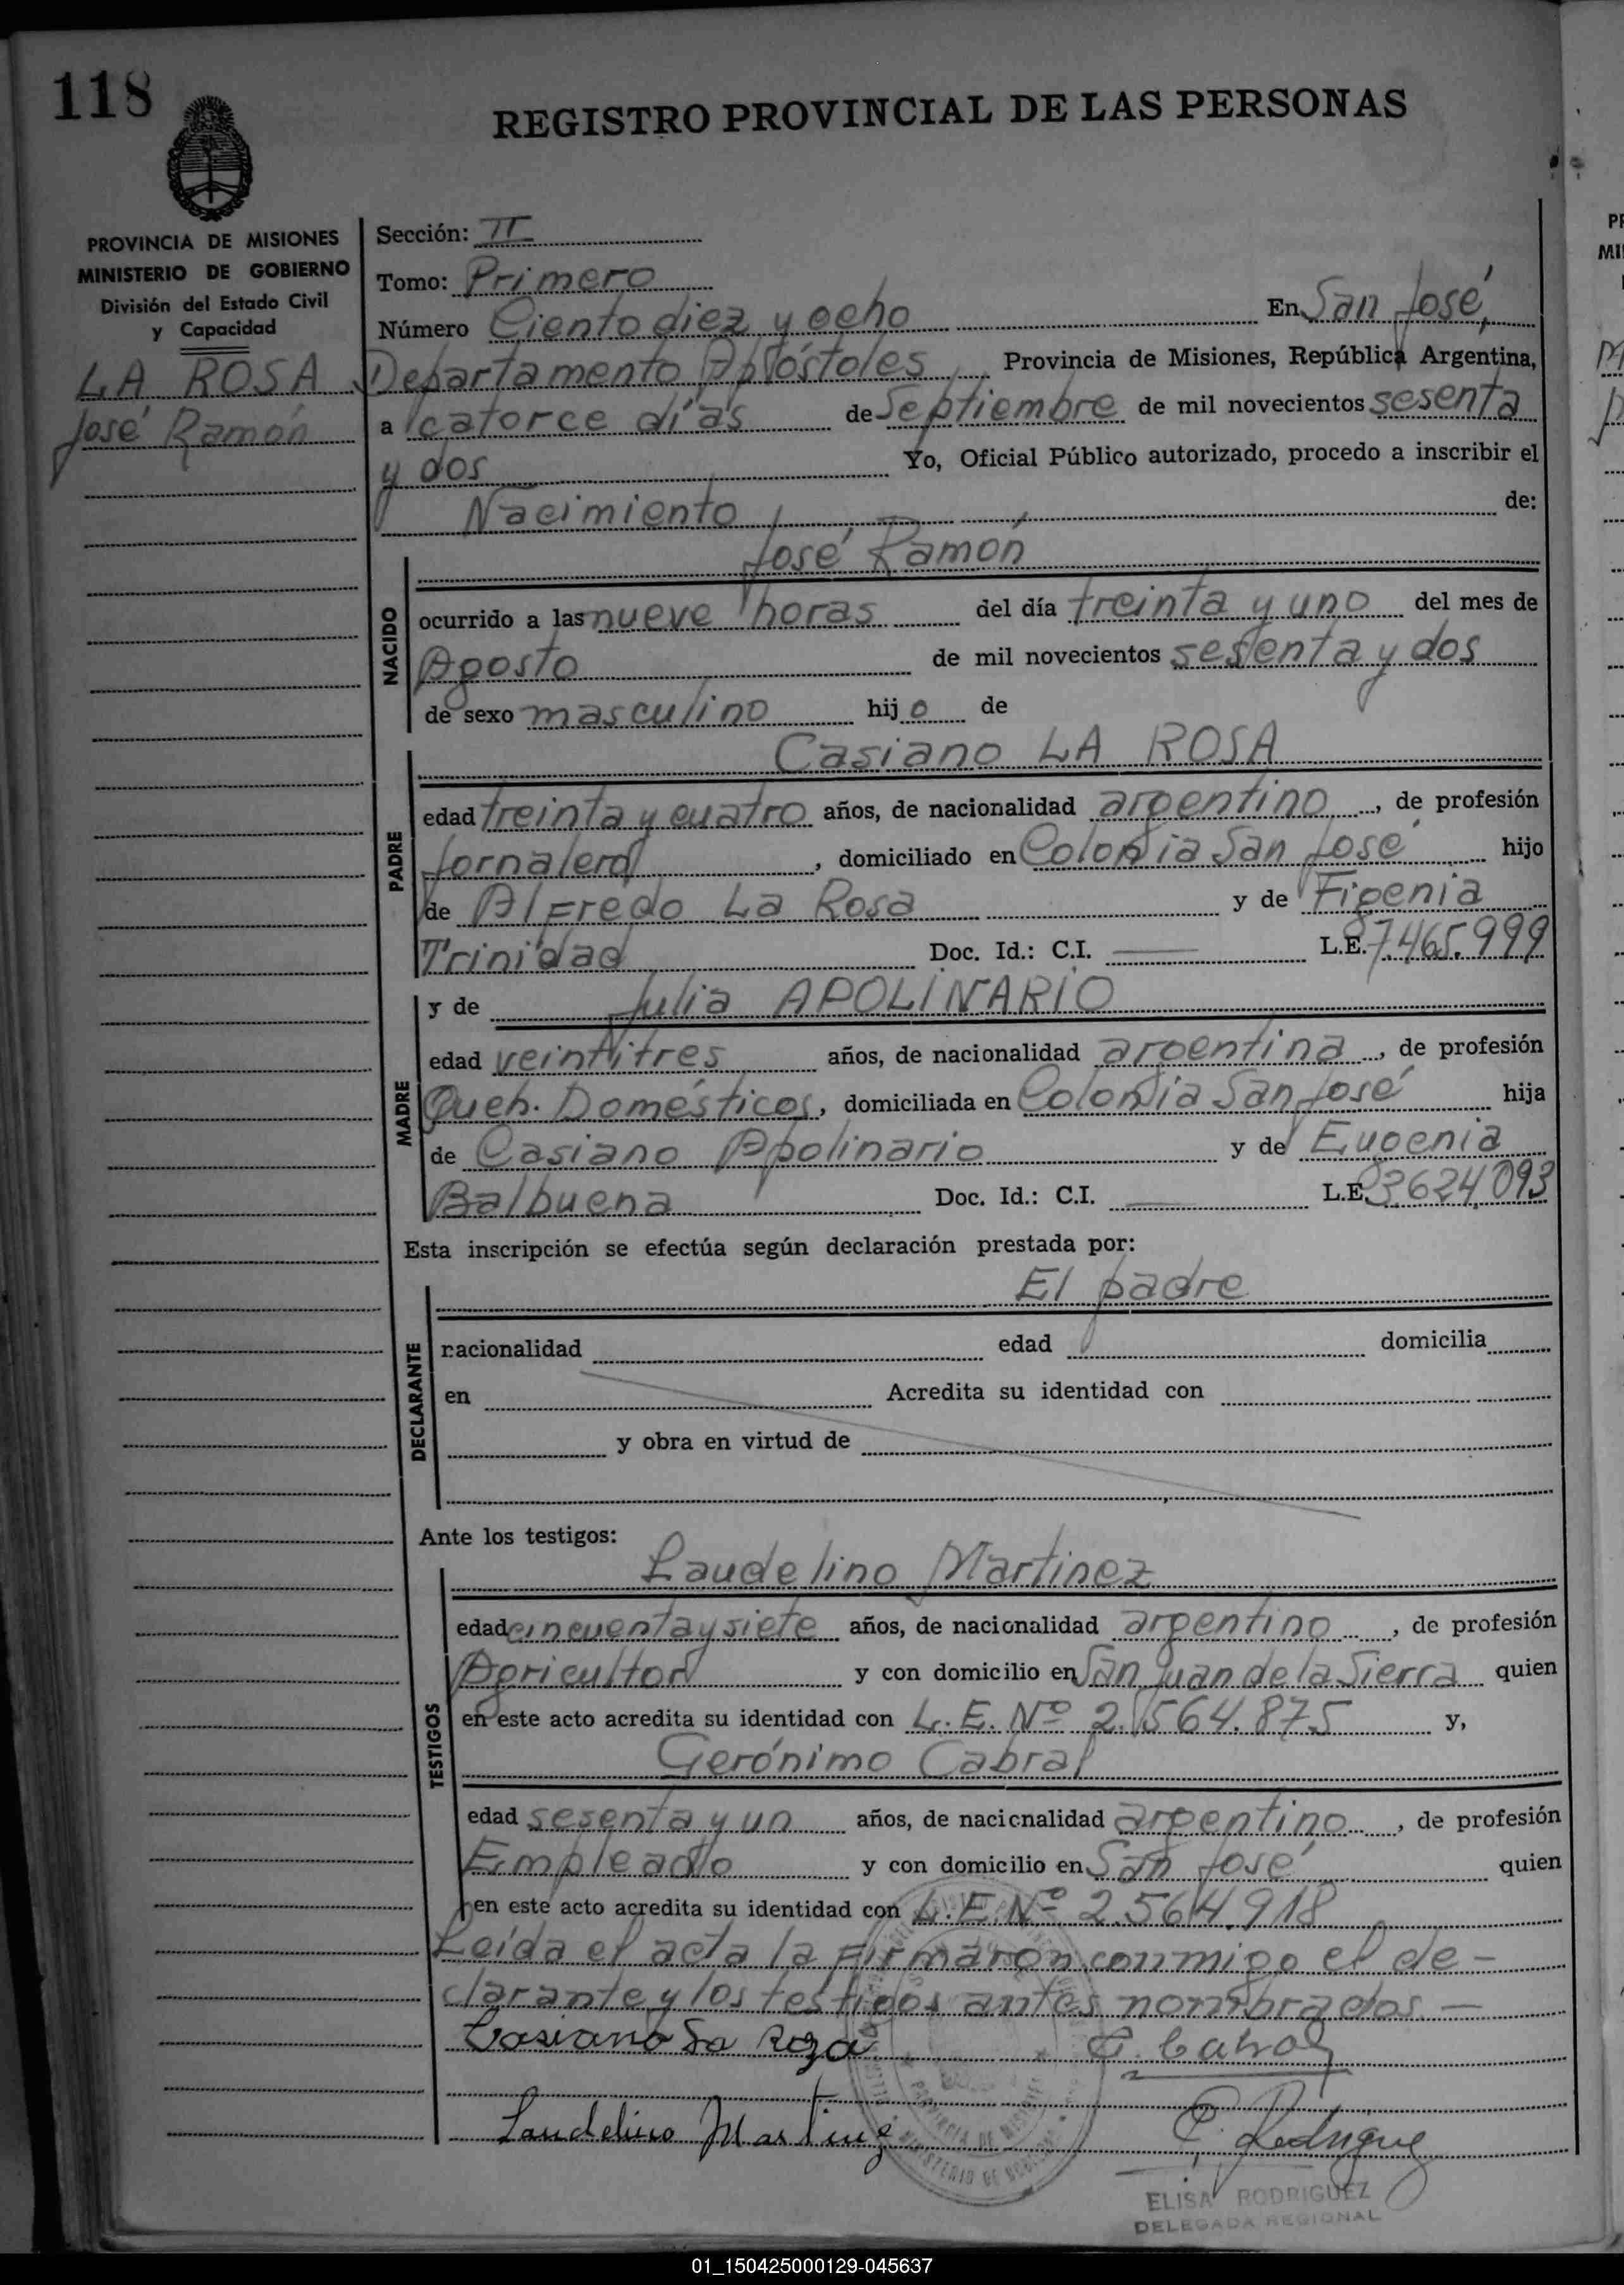 118
REGISTRO PROVINCIAL DE LAS PERSONAS
PROVINCIA DE MISIONES
MINISTERIO DE GOBIERNO
División del Estado Civil
y Capacidad
LA ROSA
José Ramón
Sección: II
Tomo: Primero
Número Ciento diez y ocho En San José,
Departamento Apóstoles Provincia de Misiones, República Argentina,
a catorce días de Septiembre de mil novecientos sesenta
y dos Yo, Oficial Público autorizado, procedo a inscribir el
Nacimiento de:
José Ramón
NACIDO
ocurrido a las nueve horas del día treinta y uno del mes de
Agosto de mil novecientos sesenta y dos
de sexo masculino hijo de
Casiano LA ROSA
PADRE
edad treinta y cuatro años, de nacionalidad argentino, de profesión
Jornalero, domiciliado en Colonia San José hijo
de Alfredo La Rosa y de Figenia
Trinidad Doc. Id.: C.I. — L.E. 7.465.999
y de Julia APOLINARIO
MADRE
edad veintitres años, de nacionalidad argentina, de profesión
Queh. Domésticos, domiciliada en Colonia San José hija
de Casiano Apolinario y de Eugenia
Balbuena Doc. Id.: C.I. — L.E. 3624,093
Esta inscripción se efectúa según declaración prestada por:
El padre
DECLARANTE
nacionalidad edad domicilia
en Acredita su identidad con
y obra en virtud de
Ante los testigos:
Laudelino Martinez
TESTIGOS
edad cincuenta y siete años, de nacionalidad argentino, de profesión
Agricultor y con domicilio en San Juan de la Sierra quien
en este acto acredita su identidad con L.E. Nº 2.564.875 y,
Gerónimo Cabral
edad sesenta y un años, de nacionalidad argentino, de profesión
Empleado y con domicilio en San José quien
en este acto acredita su identidad con L.E. Nº 2.564.918
Leída el acta la firmaron conmigo el de-
clarante y los testigos antes nombrados.—
Casiano La Roza G. Cabral
Laudelino Martinez E. Rodriguez
PROVINCIA DE MISIONES
MINISTERIO DE GOBIERNO
ELISA RODRIGUEZ
DELEGADA REGIONAL
01_150425000129-045637